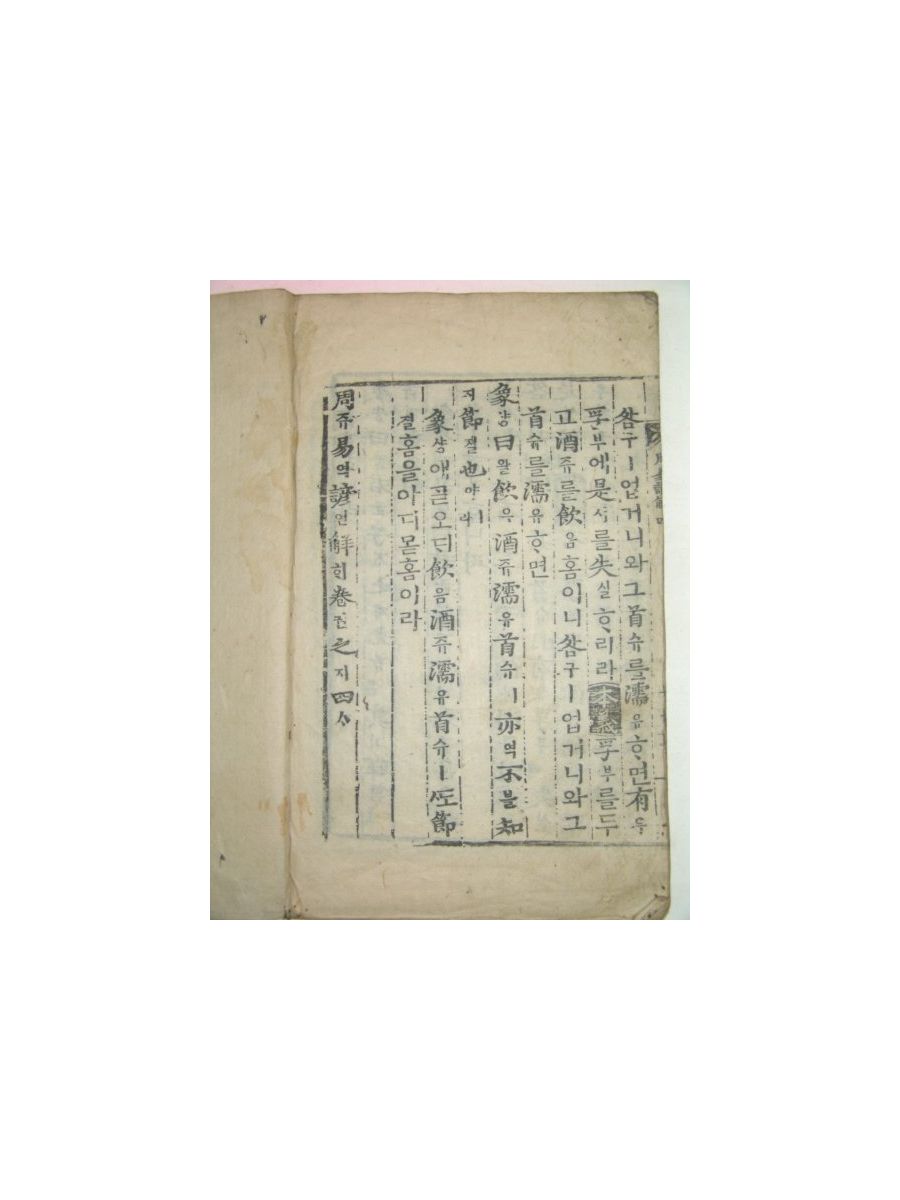 咎구ㅣ업거니와그首슈를濡유ᄒᆞ면有유
孚부에是시를失실ᄒᆞ리라孚부를두
고酒쥬를飮음홈이니咎구ㅣ업거니와그
首슈를濡유ᄒᆞ면
象샹曰왈飮음酒쥬濡유首슈ㅣ亦역不블知
지節졀也야ㅣ라
象샹애ᄀᆞᆯ오ᄃᆡ飮음酒쥬濡유首슈ㅣᄯᅩ節
졀홈을아디몯홈이라
周쥬易역諺언解ᄒᆡ卷권之지四ᄉᆞ